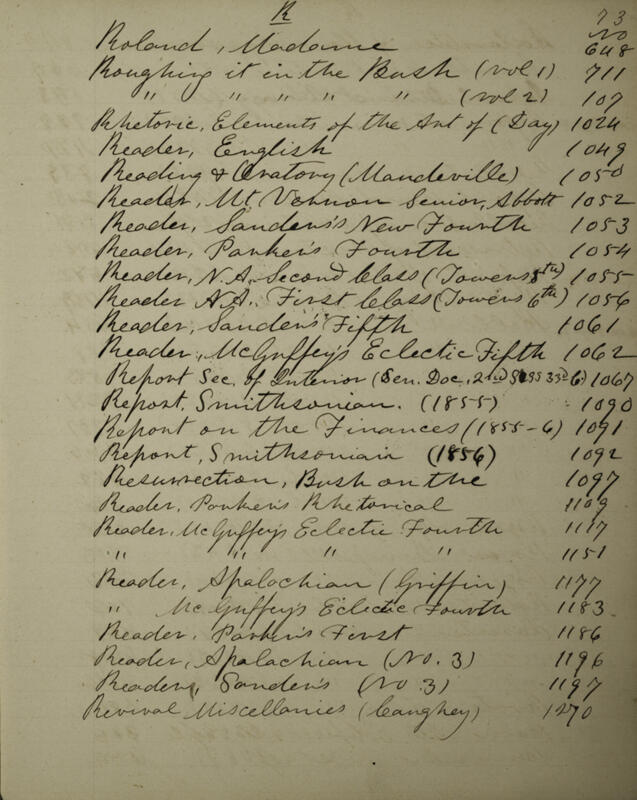 R 73
No
Roland, Madame 648
Roughing it in the Bush (vol 1) 711
" " " " " (vol 2) 107
Rhetoric, Elements of the Art of (Day) 1024
Reader, English 1049
Reading & Oratory (Mandeville) 1050
Reader, Mt. Vernon Senior, Abbott 1052
Reader, Sanders's New Fourth 1053
Reader, Parker's Fourth 1054
Reader, N.A. Second Class (Towers 5th) 1055
Reader N.A. First Class (Towers 6th) 1056
Reader, Sander's Fifth 1061
Reader, McGuffey's Eclectic Fifth 1062
Report Sec. of Interior (Sen. Doc. 2nd Sess 33rd 6) 1067
Report, Smithsonian. (1855) 1090
Report on the Finances (1855-6) 1091
Report, Smithsonian (1856) 1092
Resurrection, Bush on the 1097
Reader, Parker's Rhetorical 1109
Reader, McGuffey's Eclectic Fourth 1117
" " " " 1151
Reader, Apalachian (Griffin) 1177
" McGuffey's Eclectic Fourth 1183
Reader, Parker's First 1186
Reader, Apalachian (No. 3) 1196
Readers, Sander's (No. 3) 1197
Revival Miscellanies (Caughey) 1270